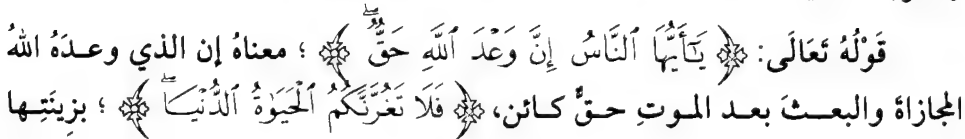 قَوْلُهُ تَعَالَى: ﴿ يَٰٓأَيُّهَا ٱلنَّاسُ إِنَّ وَعْدَ ٱللَّهِ حَقٌّۖ ﴾ ؛ معناهُ إن الذي وعدَهُ اللهُ
المجازاةَ والبعثَ بعد الموتِ حقٌّ كائن، ﴿ فَلَا تَغُرَّنَّكُمُ ٱلْحَيَوٰةُ ٱلدُّنْيَاۖ ﴾ ؛ بزِينَتِها